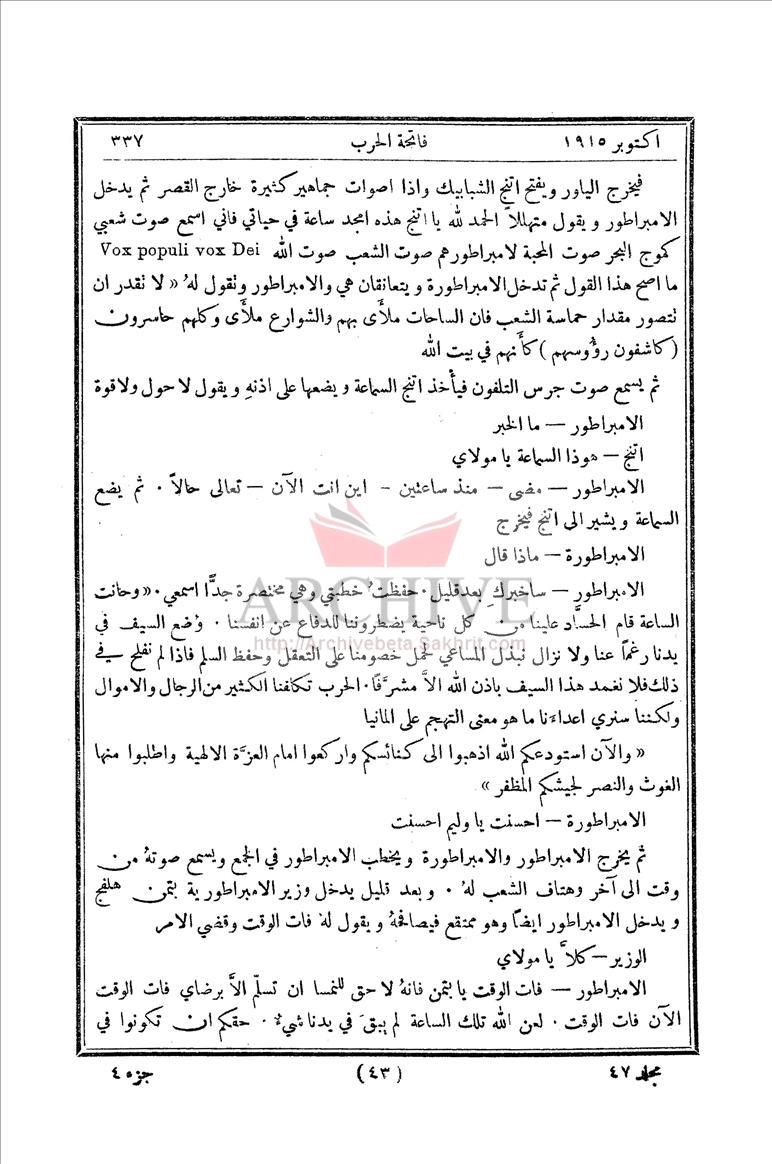 اكتوبر ١٩١٥ فاتحة الحرب ٣٣٧
فيخرج الياور ويفتح اتنج الشبابيك واذا اصوات جماهير كثيرة خارج القصر ثم يدخل
الامبراطور ويقول متهللاً الحمد لله يا اتنج هذه امجد ساعة في حياتي فاني اسمع صوت شعبي
كموج البحر صوت المحبة لامبراطورهم صوت الشعب صوت الله Vox populi vox Dei
ما اصح هذا القول ثم تدخل الامبراطورة ويتعانقان هي والامبراطور وتقول لهُ « لا نقدر ان
نتصور مقدار حماسة الشعب فان الساحات ملأى بهم والشوارع ملأى وكلهم حاسرون
(كاشفون رؤُوسهم) كأنهم في بيت الله
ثم يسمع صوت جرس التلفون فيأخذ اتنج السماعة ويضعها على اذنهِ ويقول لا حول ولا قوة
الامبراطور — ما الخبر
اتنج — هوذا السماعة يا مولاي
الامبراطور — مضى — منذ ساعتين — اين انت الآن — تعالى حالاً . ثم يضع
السماعة ويشير الى اتنج فيخرج
الامبراطورة — ماذا قال
الامبراطور — ساخبركِ بعد قليل . حفظتُ خطبتي وهي مختصرة جدًّا اسمعي . « وحانت
الساعة قام الحسَّاد علينا من كل ناحية يضطروننا للدفاع عن انفسنا . وُضع السيف في
يدنا رغماً عنا ولا نزال نبذل المساعي لحمل خصومنا على التعقل وحفظ السلم فاذا لم نفلح في
ذلك فلا نغمد هذا السيف باذن الله الاَّ مشرَّفاً . الحرب تكلفنا الكثير من الرجال والاموال
ولكننا سنري اعداءنا ما هو معنى التهجم على المانيا
« والآن استودعكم الله اذهبوا الى كنائسكم واركعوا امام العزَّة الالهية واطلبوا منها
الغوث والنصر لجيشكم المظفر »
الامبراطورة — احسنت يا وليم احسنت
ثم يخرج الامبراطور والامبراطورة ويخطب الامبراطور في الجمع ويسمع صوتهُ من
وقت الى آخر وهتاف الشعب لهُ . وبعد قليل يدخل وزير الامبراطورية بتمن هلفج
ويدخل الامبراطور ايضاً وهو ممتقع فيصافحهُ ويقول لهُ فات الوقت وقضي الامر
الوزير — كلاَّ يا مولاي
الامبراطور — فات الوقت يا بتمن فانهُ لا حق للنمسا ان تسلّم الاَّ برضاي فات الوقت
الآن فات الوقت . لعن الله تلك الساعة لم يبقَ في يدنا شيءٌ . حقكم ان تكونوا في
مجلد ٤٧ (٤٣) جزء ٤
ARCHIVE
http://Archivebeta.Sakhrit.com